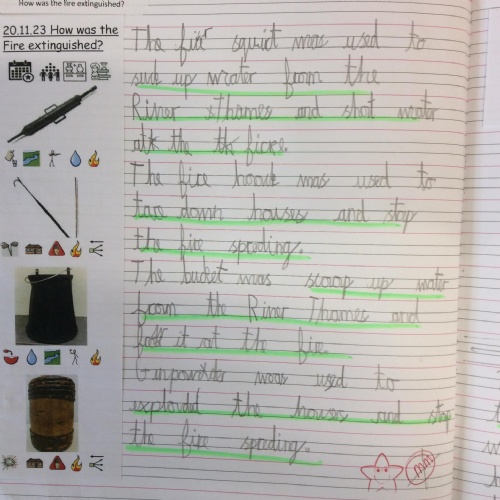 How was the fire extinguished?
20.11.23 How was the
Fire extinguished?
The fire squirt was used to
suck up water from the
River Thames and shot water
at the fire.
The fire hook was used to
tare down houses and stop
the fire spreding.
The bucket was scoop up water
from the River Thames and
it at the fire.
Gunpowder was used to
explowdd the houses and stop
the fire spreding.